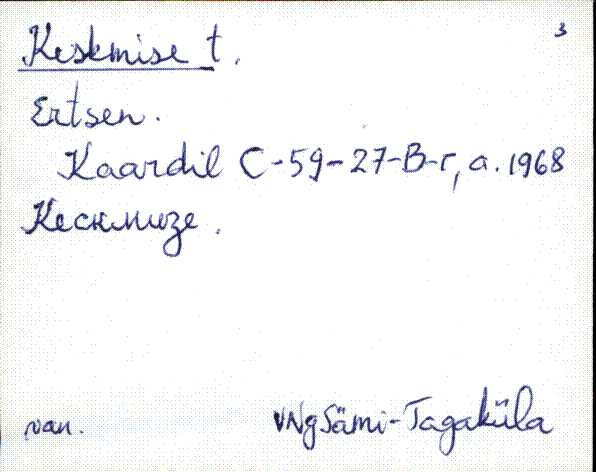 3
Keskmise t.
Ertsen.
Kaardil C-59-27-B-г, a. 1968
Кескмизе.
van.
VNg Sämi-Tagaküla